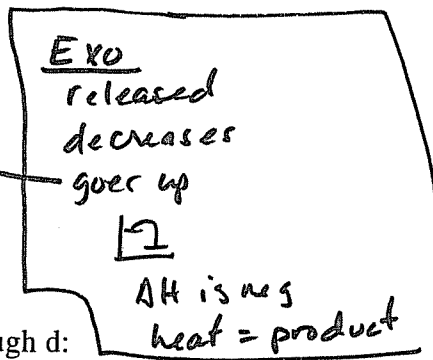 Exo
released
decreases
goes up
ΔH is neg
ugh d:
heat = product